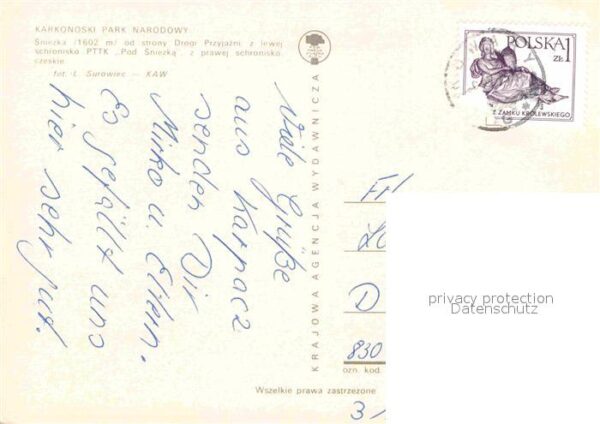 KARKONOSKI PARK NARODOWY
Śnieżka (1602 m) od strony Drogi Przyjaźni, z lewej
schronisko PTTK „Pod Śnieżką”, z prawej schronisko
czeskie
fot. Ł. Surowiec — KAW
POLSKA 1
ZŁ
Z ZAMKU KRÓLEWSKIEGO
KRAJOWA AGENCJA WYDAWNICZA
Viele Grüße
aus Karpacz
senden Dir
Mirko u. Eltern.
Es gefällt uns
hier sehr gut.
D
830
ozn. kod
Wszelkie prawa zastrzeżone
3
privacy protection
Datenschutz